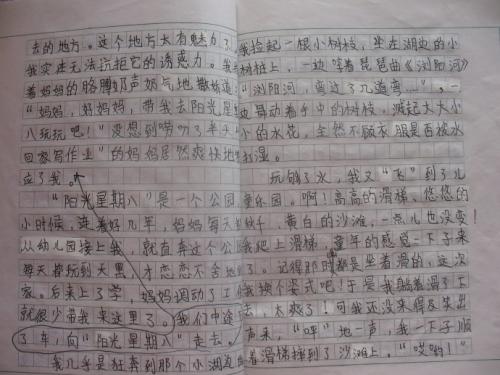 去的地方。这个地方太有魅力了,
我实在无法抗拒它的诱惑力。我
着妈妈的胳膊奶声奶气地撒娇道:
“妈妈,好妈妈,带我去阳光星期
八玩玩吧!”没想到唠叨了半天
回家写作业”的妈妈居然爽快地
应了我。
“阳光星期八”是一个公园,
小时候,连着好几年,妈妈每天
从幼儿园接上我,就直奔这个公
每天撑玩到大黑,才恋恋不舍地
家。后来上了学,妈妈调动了工
就很少带我来这里了。我们中途
了车,向“阳光星期八”走去。
我几乎是狂奔到那个小湖边
我捡起一根小树枝,坐在湖边的小
树桩上,一边哼着琵琶曲《浏阳河》
“浏阳河,弯过了几道弯……”,一
边舞动着手中的树枝,溅起大大小
小的水花,全然不顾衣服是否被水
打湿。
玩够了水,我又“飞”到了儿
童乐园。啊!高高的滑梯、悠悠的
秋千,黄白的沙滩,一点儿也没变!
我爬上滑梯,童年的感觉一下子来
了。记得那时都是坐着滑的,这次
我换个姿式吧!于是我躺着滑了下
去,太爽了!可我还没来得及笑出
声来,“呯”地一声,我一下子顺
着滑梯摔到了沙滩上。“哎哟!”